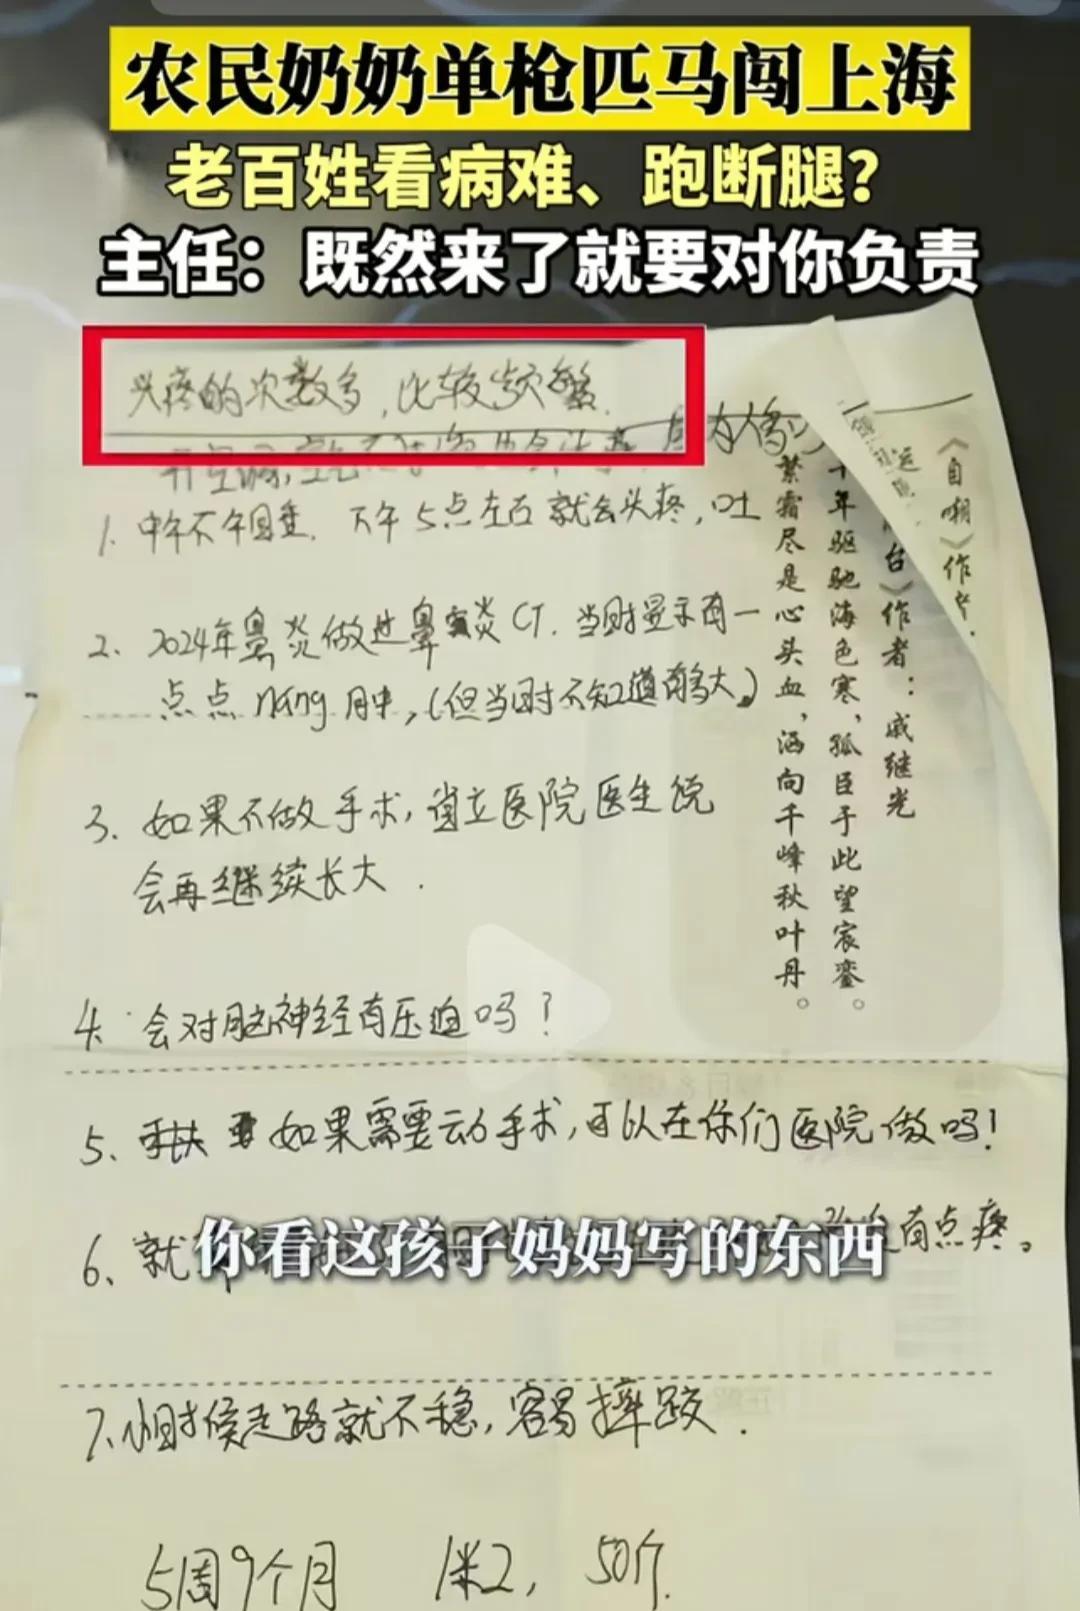 农民奶奶单枪匹马闯上海
老百姓看病难、跑断腿？
主任：既然来了就要对你负责
头疼的次数多，比较频繁.
1. 中午不午睡. 下午5点左右就会头疼，吐
2、2024年鼻炎做过鼻窦炎CT. 当时显示有一
点点náng肿，(但当时不知道有多大。)
3、如果不做手术，省立医院医生说
会再继续长大.
4. 会对脑神经有压迫吗？
5、如果需要动手术，可以在你们医院做吗！
6、就
有点疼。
你看这孩子妈妈写的东西
7.小时候走路就不稳，容易摔跤.
5周9个月 1米2， 50斤.
《自嘲》作者.
台》作者：戚继光
十年驱驰海色寒，孤臣于此望宸銮。
繁霜尽是心头血，洒向千峰秋叶丹。